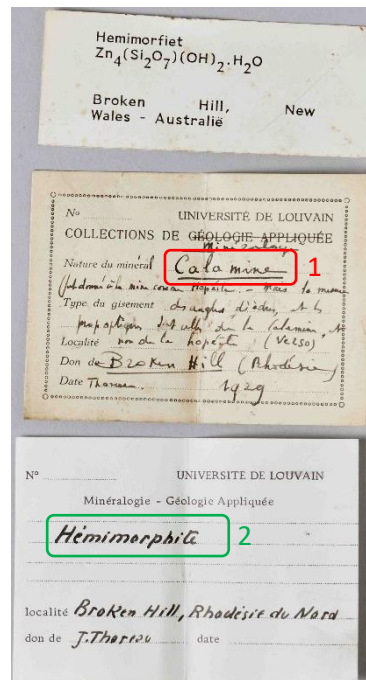 Hemimorfiet
Zn4(Si2O7)(OH)2.H2O
Broken Hill, New
Wales - Australië
No UNIVERSITÉ DE LOUVAIN
COLLECTIONS DE GÉOLOGIE APPLIQUÉE
Minéralogie
Nature du minéral Calamine 1
comme Hopéite - Mais la mesure
Type du gisement des angles dièdres, et les
de la Calamine,
Localité nom de la hopéite (Verso)
Don de Broken Hill (Rhodésie)
Date Thoreau 1929
No UNIVERSITE DE LOUVAIN
Minéralogie - Géologie Appliquée
Hémimorphite 2
localité Broken Hill, Rhodésie du Nord
don de J. Thoreau date